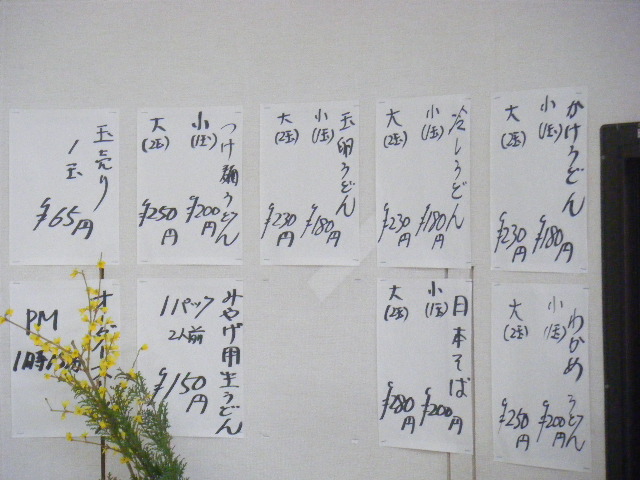 かけうどん
小(1玉) ¥180円
大(2玉) ¥230円
冷しうどん
小(1玉) ¥180円
大(2玉) ¥230円
玉卵うどん
小(1玉) ¥180円
大(2玉) ¥230円
つけ麺うどん
小(1玉) ¥200円
大(2玉) ¥250円
玉売り
1玉
¥65円
わかめうどん
小(1玉) ¥200円
大(2玉) ¥250円
日本そば
小(1玉) ¥200円
大(2玉) ¥280円
みやげ用生うどん
1パック
2人前
¥150円
PM
1時